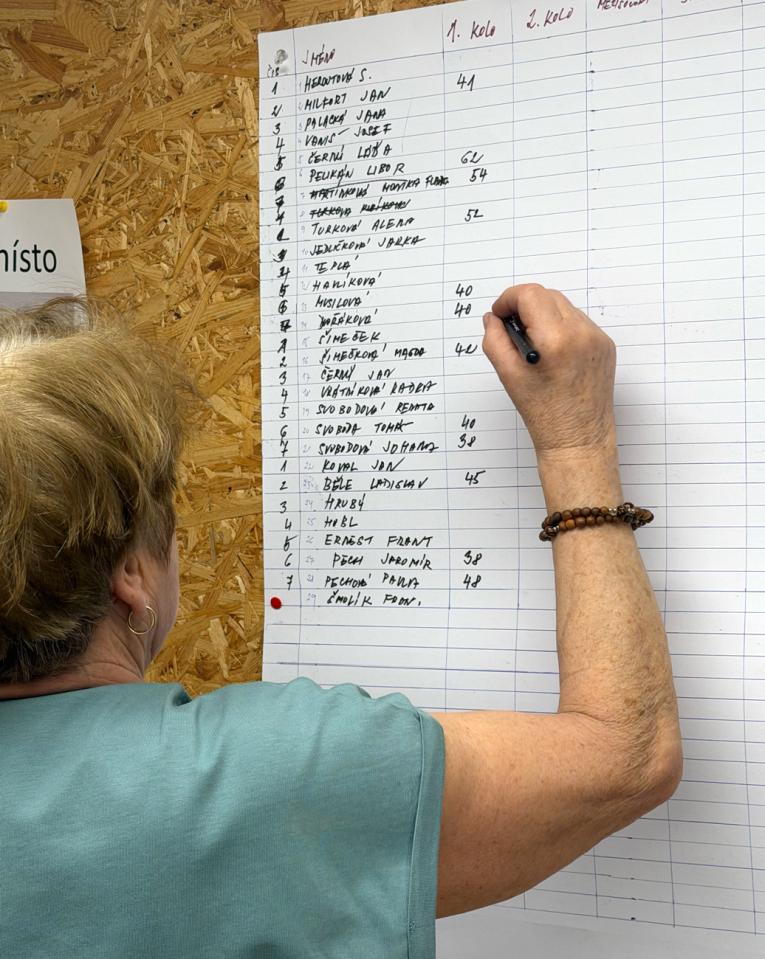 místo
JMÉNO 1. KOLO 2. KOLO
1 HEROUTOVÁ S. 41
2 MILFORT JAN
3 PALACKÁ JANA
4 VANIŠ JOSEF
5 ČERNÝ
6 PELIKÁN LIBOR 62
7 MONIKA 54
TURKOVÁ ALENA 52
JEDLIČKOVÁ JARKA
TEPLÁ
5 HAVLÍKOVÁ
6 MUSILOVÁ 40
7 40
1 ŠIMEČEK
2 ŠIMEČKOVÁ MAGDA 42
3 ČERNÝ JAN
4 VRÁTNÍKOVÁ RADKA
5 SVOBODOVÁ RENATA
6 SVOBODA TOMÁŠ 40
7 SVOBODOVÁ JOHANA 38
1 KOVAL JAN
2 BĚLE LADISLAV 45
3 HRUBÝ
4 HOBL
5 ERNEST FRANT
6 PECH JAROMÍR 38
7 PECHOVÁ PAVLA 48
29 ŠMOLÍK